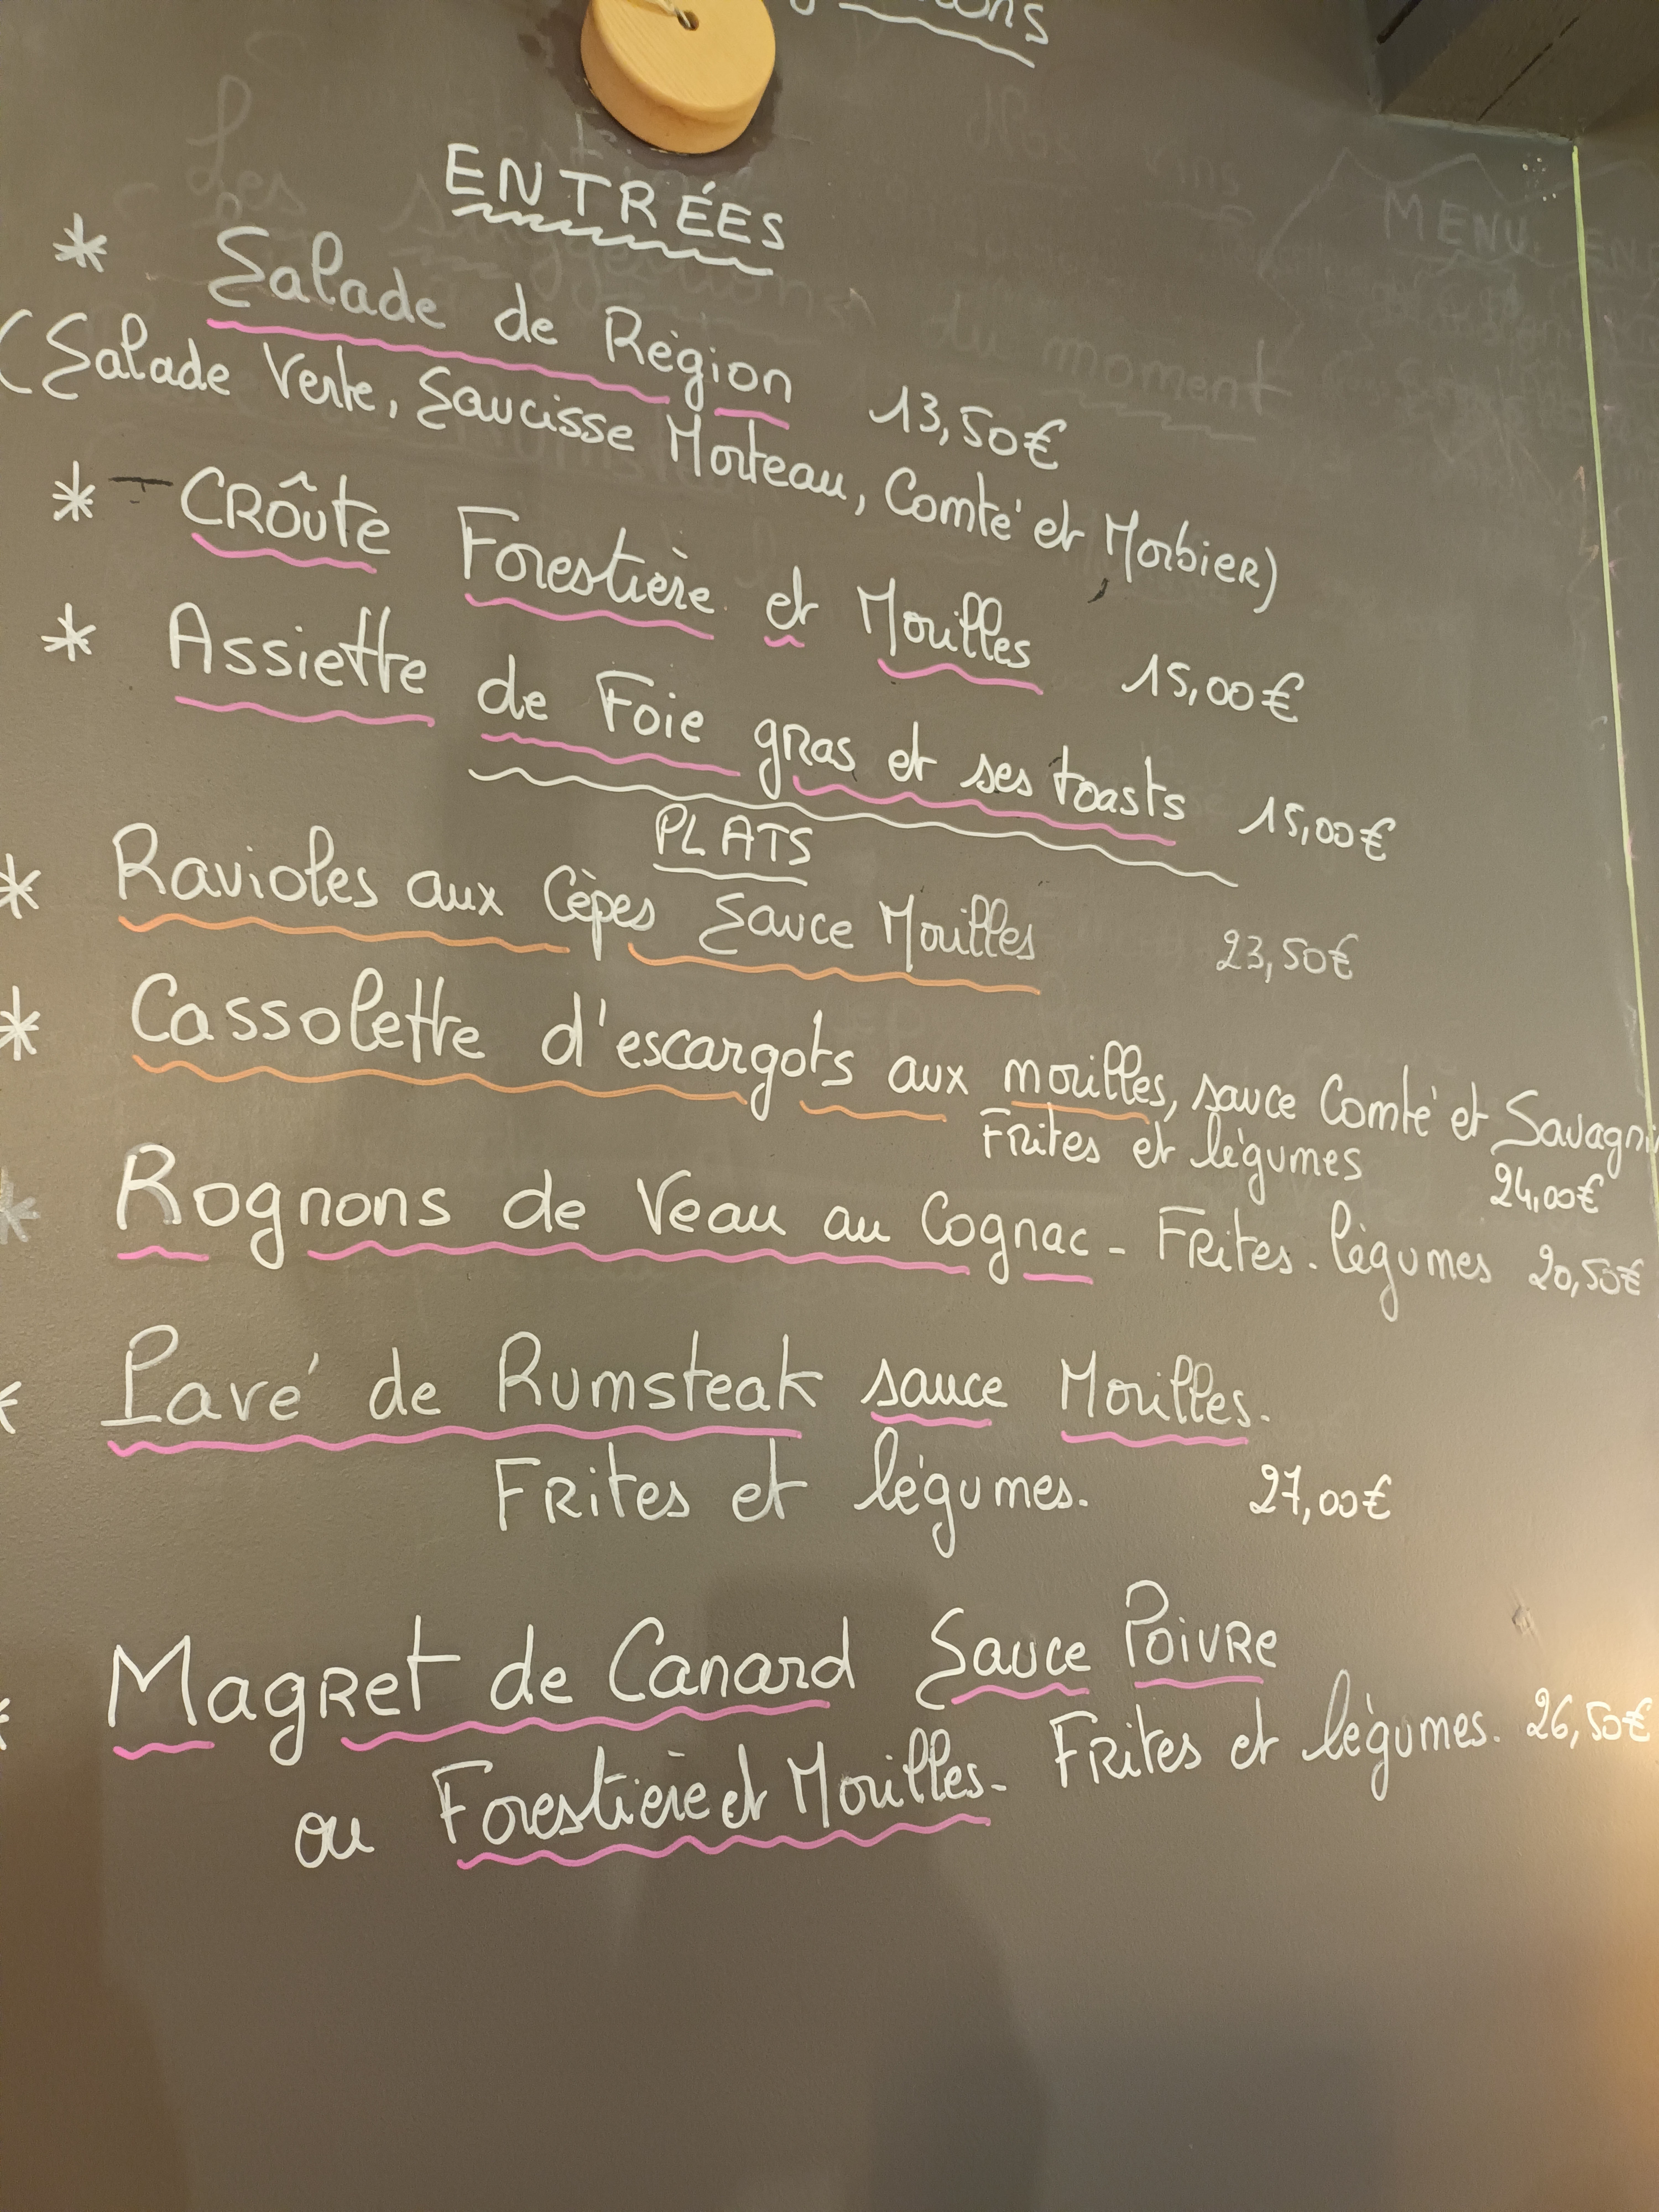 ENTRÉES
* Salade de Région 13,50€
(Salade Verte, Saucisse Morteau, Comté et Morbier)
* CROûte Forestière et Morilles 15,00€
* Assiette de Foie gras et ses toasts 15,00€
PLATS
* Ravioles aux Cèpes Sauce Morilles 23,50€
* Cassolette d'escargots aux morilles, sauce Comté et Savagnin
Frites et légumes 24,00€
* Rognons de Veau au Cognac - Frites - légumes 20,50€
* Pavé de Rumsteak sauce Morilles.
Frites et légumes. 27,00€
* Magret de Canard Sauce Poivre
ou Forestière et Morilles - Frites et légumes. 26,50€